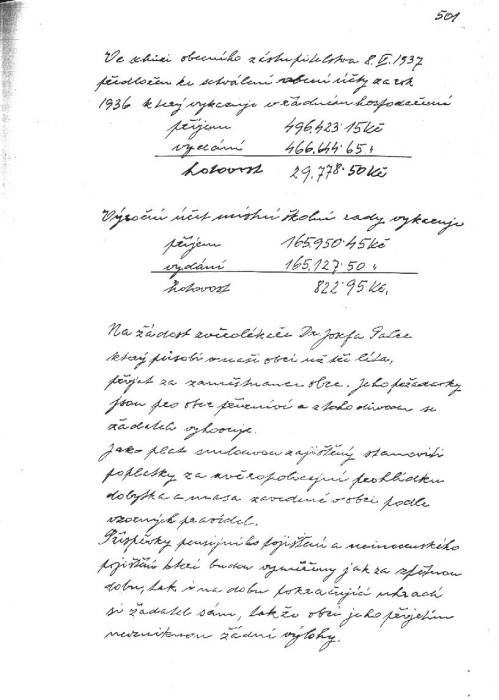 501
Ve schůzi obecního zastupitelstva 8.VI.1937
předložen ke schválení obecní účty za rok
1936 který vykazuje v řádném hospodaření
příjem 496.423·15 Kč
vydání 466.644·65 „
hotovost 29.778·50 Kč
Výroční účet místní školní rady vykazuje
příjem 165.950·45 Kč
vydání 165.127·50 „
hotovost 822·95 Kč.
Na žádost zvěrolékaře Dr. Josefa Palce
který působí v naší obci už tři léta,
přijat za zaměstnance obce. Jeho požadavky
jsou pro obec příznivé a z toho důvodu se
žádateli vyhovuje.
Jako plat smluvou zajištěný stanoviti
poplatky za zvěropolicejní prohlídku
dobytka a masa zavedené v obci podle
vzorných pravidel.
Příspěvky pensijního pojištění a nemocenského
pojištění které budou vyměřeny jak za zpětnou
dobu, tak i na dobu pokračující uhradí
si žadatel sám, takže obci jeho přijetím
nevzniknou žádné výlohy.